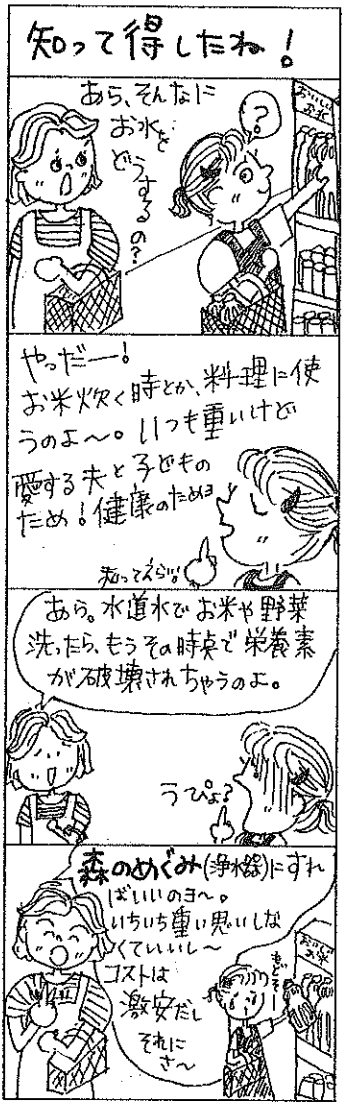 知って得したね!
あら、そんなに
お水を
どうするの?
?
おいしい
お水
やっだー!
お米炊く時とか、料理に使
うのよ〜。いつも重いけど
愛する夫と子どもの
ため!健康のためヨ
あら。水道水でお米や野菜
洗ったら、もうその時点で栄養素
が破壊されちゃうのよ。
うぴょ?
森のめぐみ(浄水器)にすれ
ばいいのヨ〜。
いちいち重い思いしな
くていいし〜
コストは
激安だし
それに
さ〜
もどそー
おいしい
お水